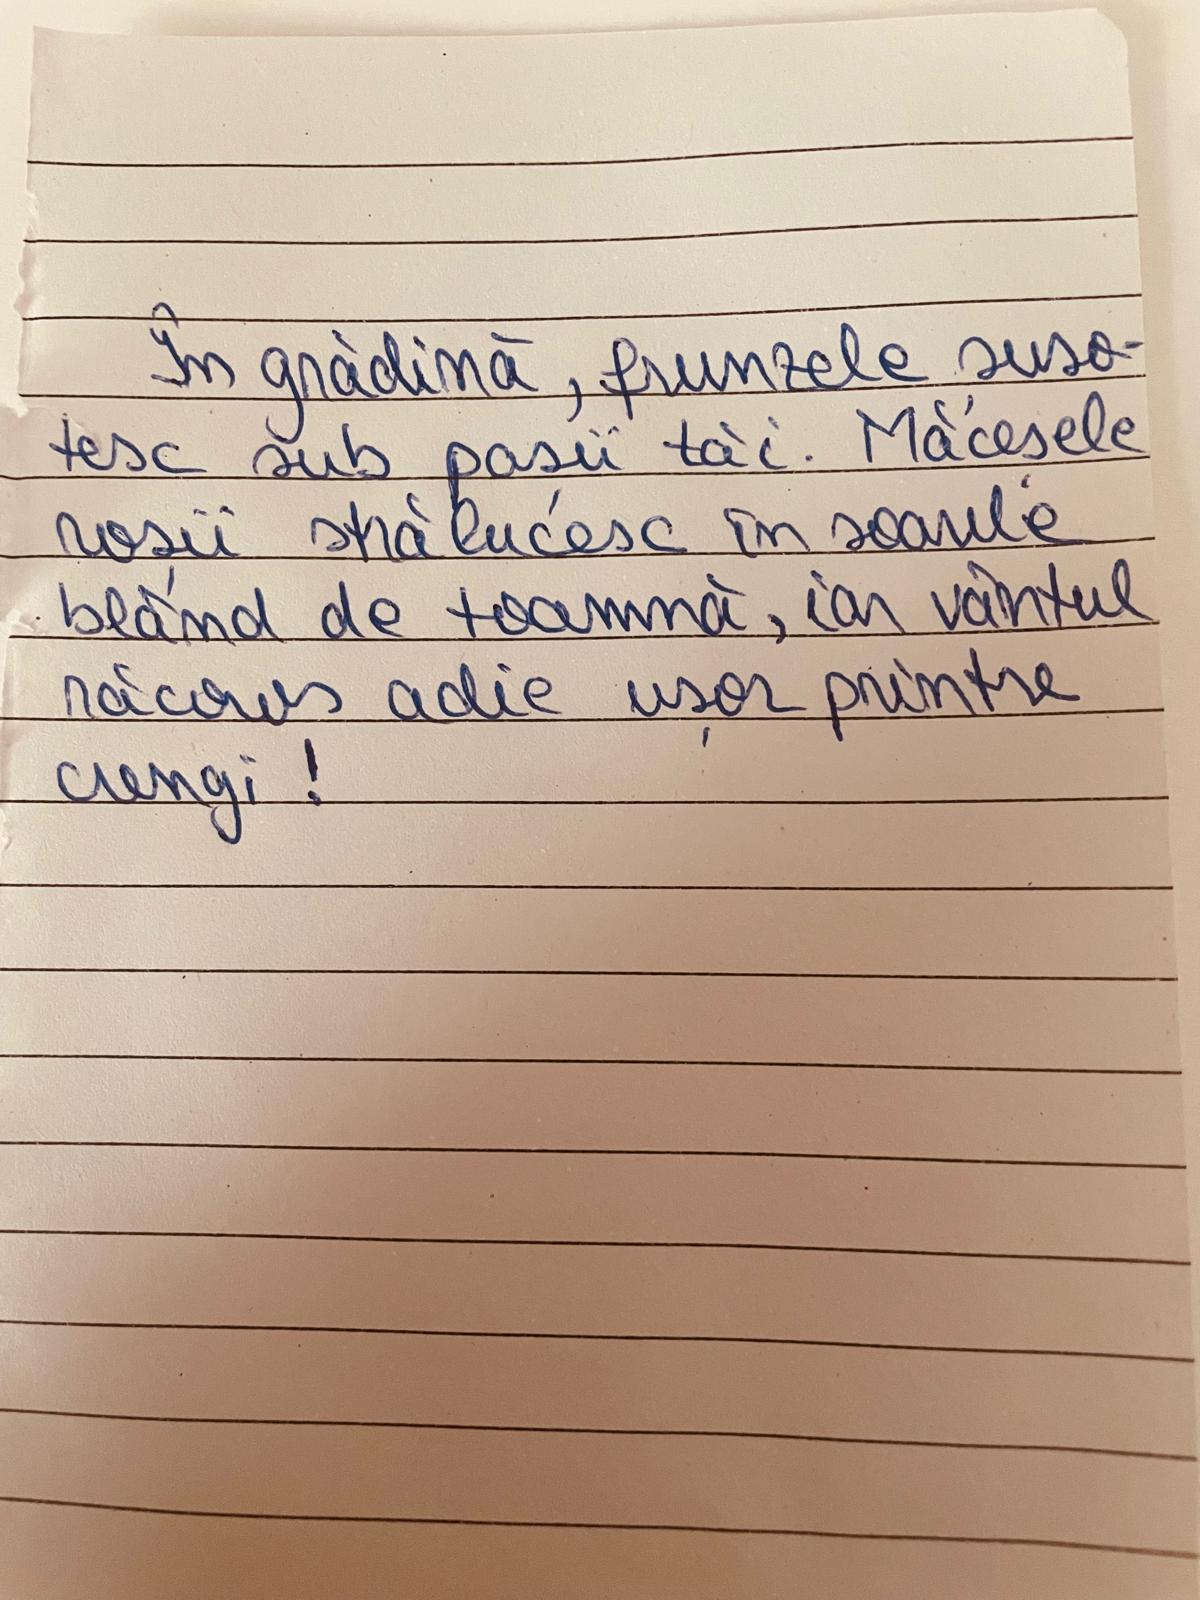 În grădină, frunzele șușo-
tesc sub pașii tăi. Măceșele
roșii strălucesc în soarele
blând de toamnă, iar vântul
răcoros adie ușor printre
crengi!